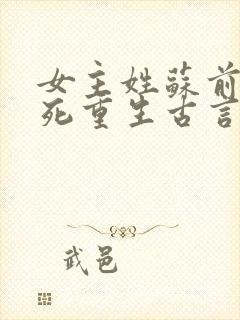 女主姓蘇前
死重生古言
武邑